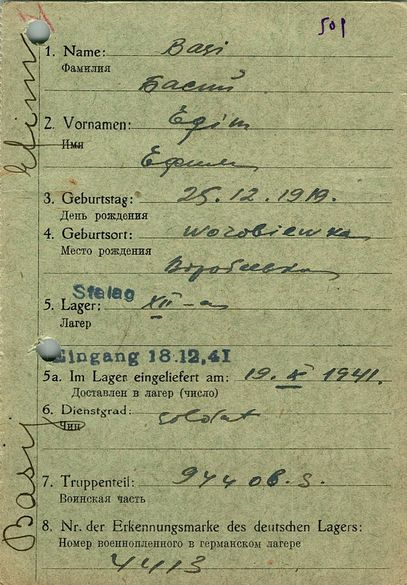 501
1. Name: Basi
Фамилия
Басий
2. Vornamen: Efim
Имя
Ефим
3. Geburtstag: 25.12.1919.
День рождения
4. Geburtsort: Worobiewka
Место рождения
Воробевка
Stalag
5. Lager: XII-a
Лагер
Eingang 18.12.41
5a. Im Lager eingeliefert am: 19. X 1941.
Доставлен в лагер (число)
6. Dienstgrad: soldat
Чин
7. Truppenteil: 944
Воинская часть
8. Nr. der Erkennungsmarke des deutschen Lagers:
Номер военнопленного в германском лагере
4413
Basij